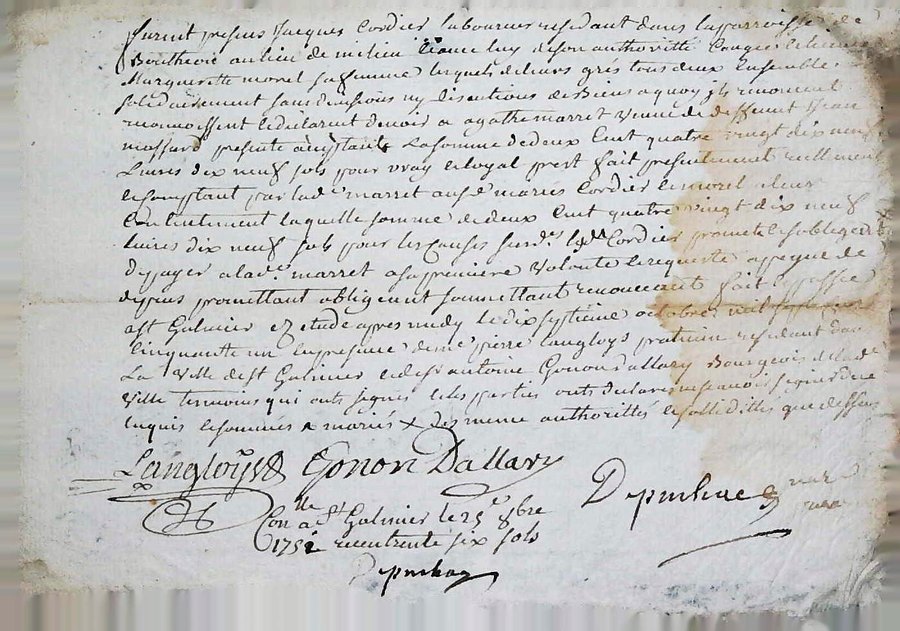 furent presens Jacques Cordier laboureur residant dans la parroisse de
Boitheon au lieu de milieu licance luy de son authoritte Congée et licence
Margueritte morel sa femme lesquels de leurs grés tous deux Ensemble
solidairement sans divisions ny discutions de Biens a quoy ils renoncent
reconnoissent et declarent devoir a agathe marret veuve de deffunt Jean
massard presente acceptante La somme de deux Cent quatre vingt dix neuf
Livres dix neuf sols pour vray et loyal prest fait presentement reellement
et comptant par lad.e marret auxd. mariés Cordier et morel a leur
Contentement laquelle somme de deux Cent quatre vingt dix neuf
livres dix neuf sols pour les Causes susd.es led. Cordier promet et s'oblige
de payer a lad.e marret a sa première Volonté et requeste a peyne de
depens promettant obligeant soumettant renonceant fait et passé
a st Galmier ez etude apres midy le dix septième octobre mil sept cent
cinquante un en presence de me pierre Langloys praticien residant dans
La ville de st Galmier et de sr antoine Gonon dallary Bourgeois de lade
ville temoins qui onts signés et les parties onts declaré ne scavoir signer de ce
enquis et sommés x mariés x des meme authorittes et sollidittes que dessus
Langloys Gonon Dallary
Depurhac
Con.lle a St Galmier le 25e 8bre
1751 recu trente six sols
Depurhac